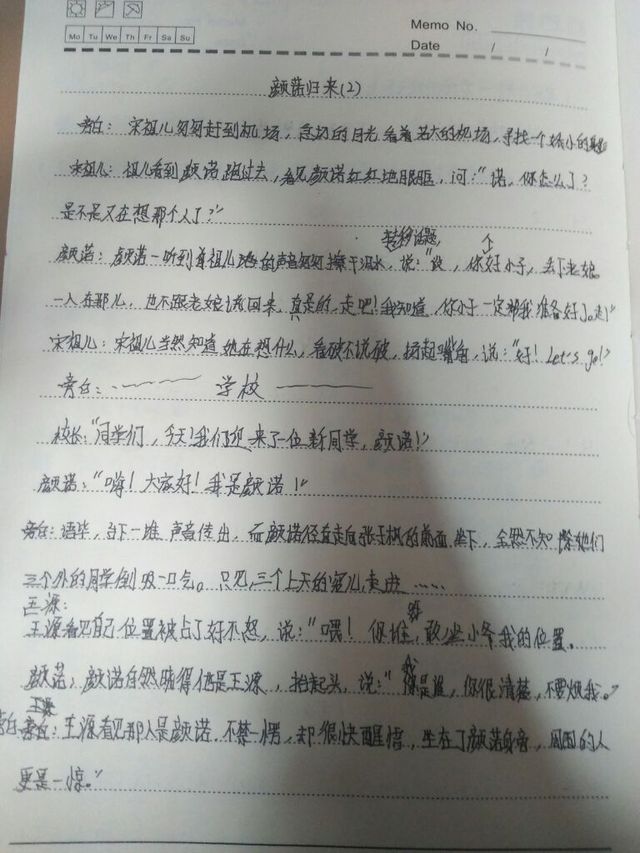 Memo No.
Mo Tu We Th Fr Sa Su
Date / /
颜诺归来(2)
旁白：宋祖儿匆匆赶到机场，急切的目光看着若大的机场，寻找一个娇小的
宋祖儿：祖儿看到颜诺跑过去，看见颜诺红红地眼眶，问：“诺，你怎么了？
是不是又在想那个人了？”
转移话题，
颜诺：颜诺一听到宋祖儿的声音匆匆擦干泪水，说：“没，你个好小子，丢下老娘
一人在那儿，也不跟老娘我回来，真是的，走吧！我知道，你小子一定都我准备好了。走！”
宋祖儿：宋祖儿当然知道她在想什么，看破不说破，扬起嘴角，说：“好！Let's go!”
旁白：学校
校长：“同学们，今天！我们迎来了一位新同学，颜诺！”
颜诺：“嗨！大家好！我是颜诺！”
旁白：语毕，台下一堆声音传出，而颜诺径直走向张子枫的桌面坐下，全然不知除她们
三个外的同学倒吸一口气。只见，三个上天的宠儿走进……
王源：
王源看见自己位置被占了好不怒，说：“喂！你谁，敢坐小爷我的位置。
颜诺：颜诺自然晓得他是王源，抬起头，说：“我是谁，你很清楚，不要烦我。”
旁白：王源看见那人是颜诺，不禁一愣，却很快醒悟，坐在了颜诺身旁，周围的人
更是一惊。”